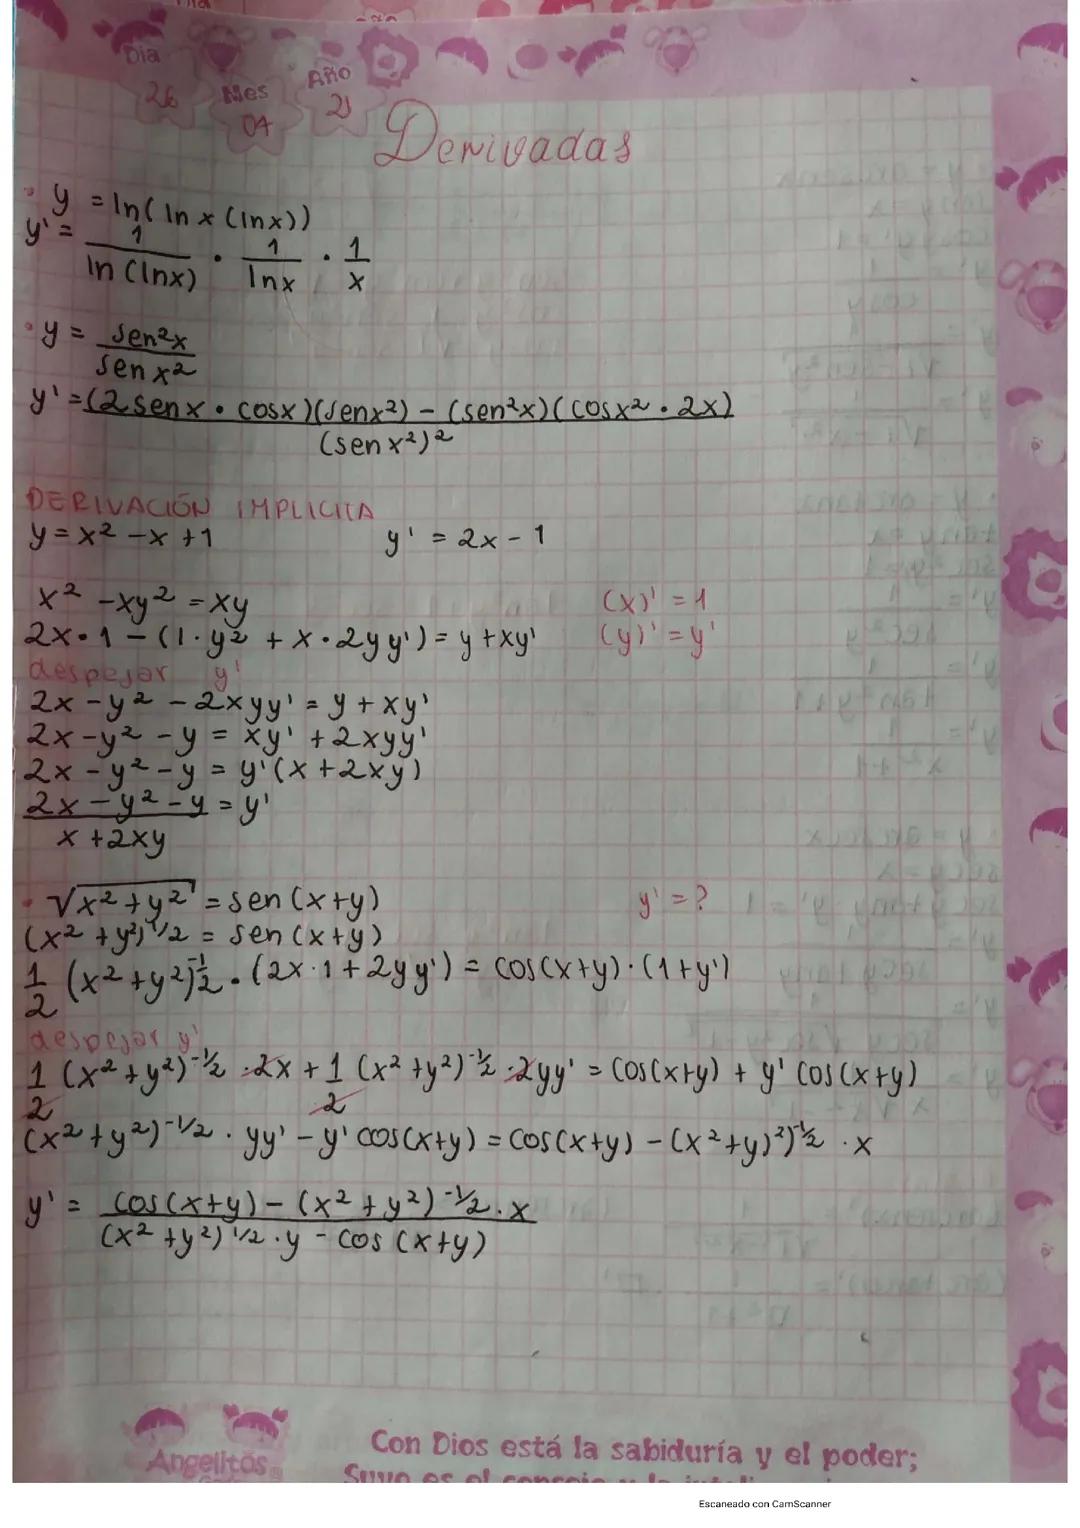 Día
26
Mes
04
Año
21
Derivadas
• y = ln( ln x (lnx))
y' = 1/ln (lnx) • 1/lnx • 1/x
• y = sen²x/sen x²
y' = (2senx • cosx)(senx²) - (sen²x)(cosx² • 2x)/(sen x²)²
DERIVACIÓN IMPLICITA
y = x² - x + 1 y' = 2x - 1
x² - xy² = xy (x)' = 1
2x • 1 - (1 · y² + x • 2yy') = y + xy' (y)' = y'
despejar y'
2x - y² - 2xyy' = y + xy'
2x - y² - y = xy' + 2xyy'
2x - y² - y = y'(x + 2xy)
2x - y² - y/x + 2xy = y'
• √x² + y² = sen (x+y) y' = ?
(x² + y²)^1/2 = sen (x+y)
1/2 (x² + y²)^-1/2 • (2x · 1 + 2yy') = cos(x+y) · (1 + y')
despejar y'
1/2 (x² + y²)^-1/2 · 2x + 1/2 (x² + y²)^-1/2 · 2yy' = cos(x+y) + y' cos(x+y)
(x² + y²)^-1/2 · yy' - y' cos(x+y) = cos(x+y) - (x² + y)²)^-1/2 · x
y' = cos(x+y) - (x² + y²)^-1/2 · x/(x² + y²)^1/2 · y - cos (x+y)
Angelitos
Con Dios está la sabiduría y el poder;
Suyo es el consejo
Escaneado con CamScanner